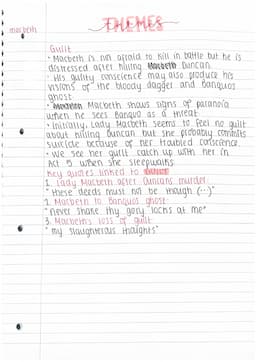 macbeth
THEMES
Guilt
• Macbeth is not afraid to kill in battle but he is
distressed after killing Duncan.
• His guilty conscience may also produce his
visions of the bloody dagger and Banquos
ghost.
• Macbeth shows signs of paranoia
when he sees Banquo as a threat.
• Initially, Lady Macbeth seems to feel no guilt
about killing Duncan but she probably commits
suicide because of her troubled conscience.
• We see her guilt catch up with her in
Act 5 when she sleepwalks.
key quotes linked to
1. Lady Macbeth after Duncans murder:
"these deeds must not be though (...)"
2. Macbeth to Banquos ghost:
"never shake thy gory locks at me"
3. Macbeth's loss of guilt
"my slaughterous thoughts"